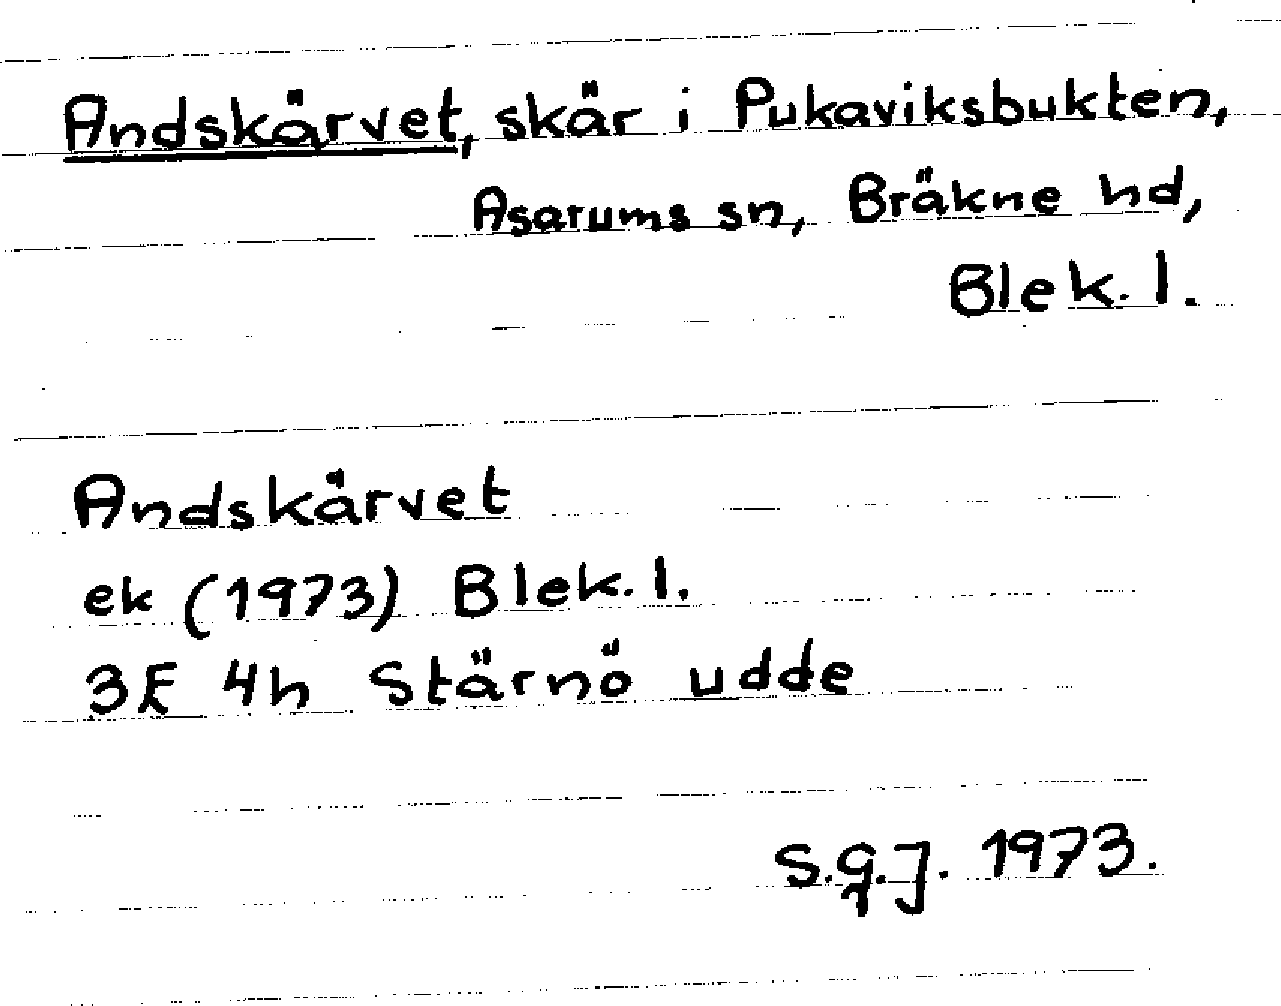 Andskärvet, skär i Pukaviksbukten,
Asarums sn, Bräkne hd,
Blek. l.
Andskärvet
ek (1973) Blek. l.
3E 4h Stärnö udde
S.G.J. 1973.